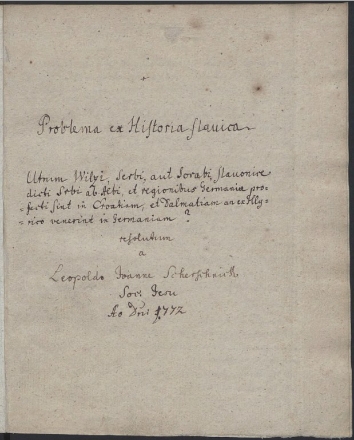 Problema ex Historia slavica
Utrum Wilzi, Serbi, aut Sorabi, slavonice
dicti Srbi ab Albi, et regionibus Germania pro=
=fecti sint in Croatiam, et Dalmatiam an ex Illy=
=rico venerint in Germaniam ?
resolutum
a
Leopoldo Joanne Scherschnik
Soc. Jesu
Ao Dni 1772